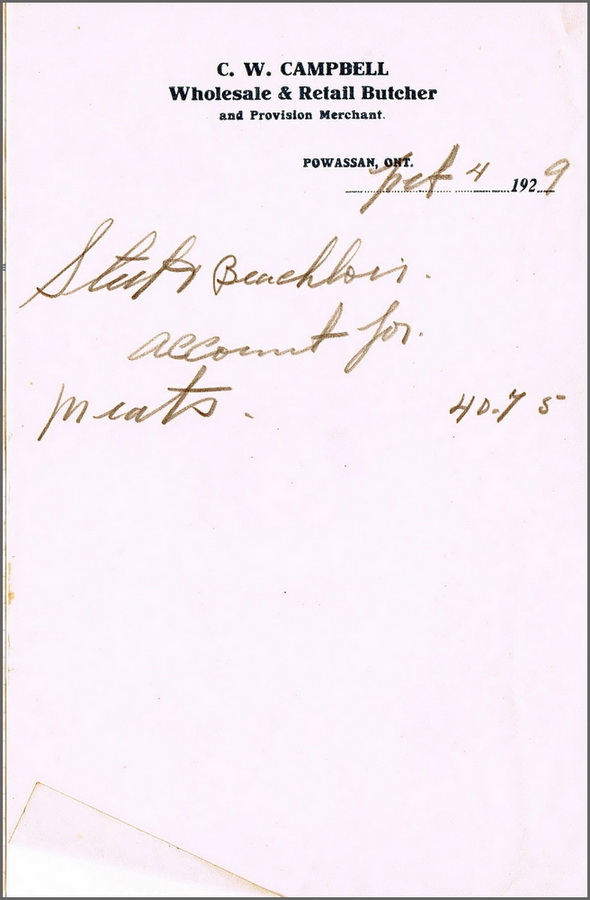 C. W. CAMPBELL
Wholesale & Retail Butcher
and Provision Merchant.
POWASSAN, ONT.
4 1929
account for.
meats. 40.75